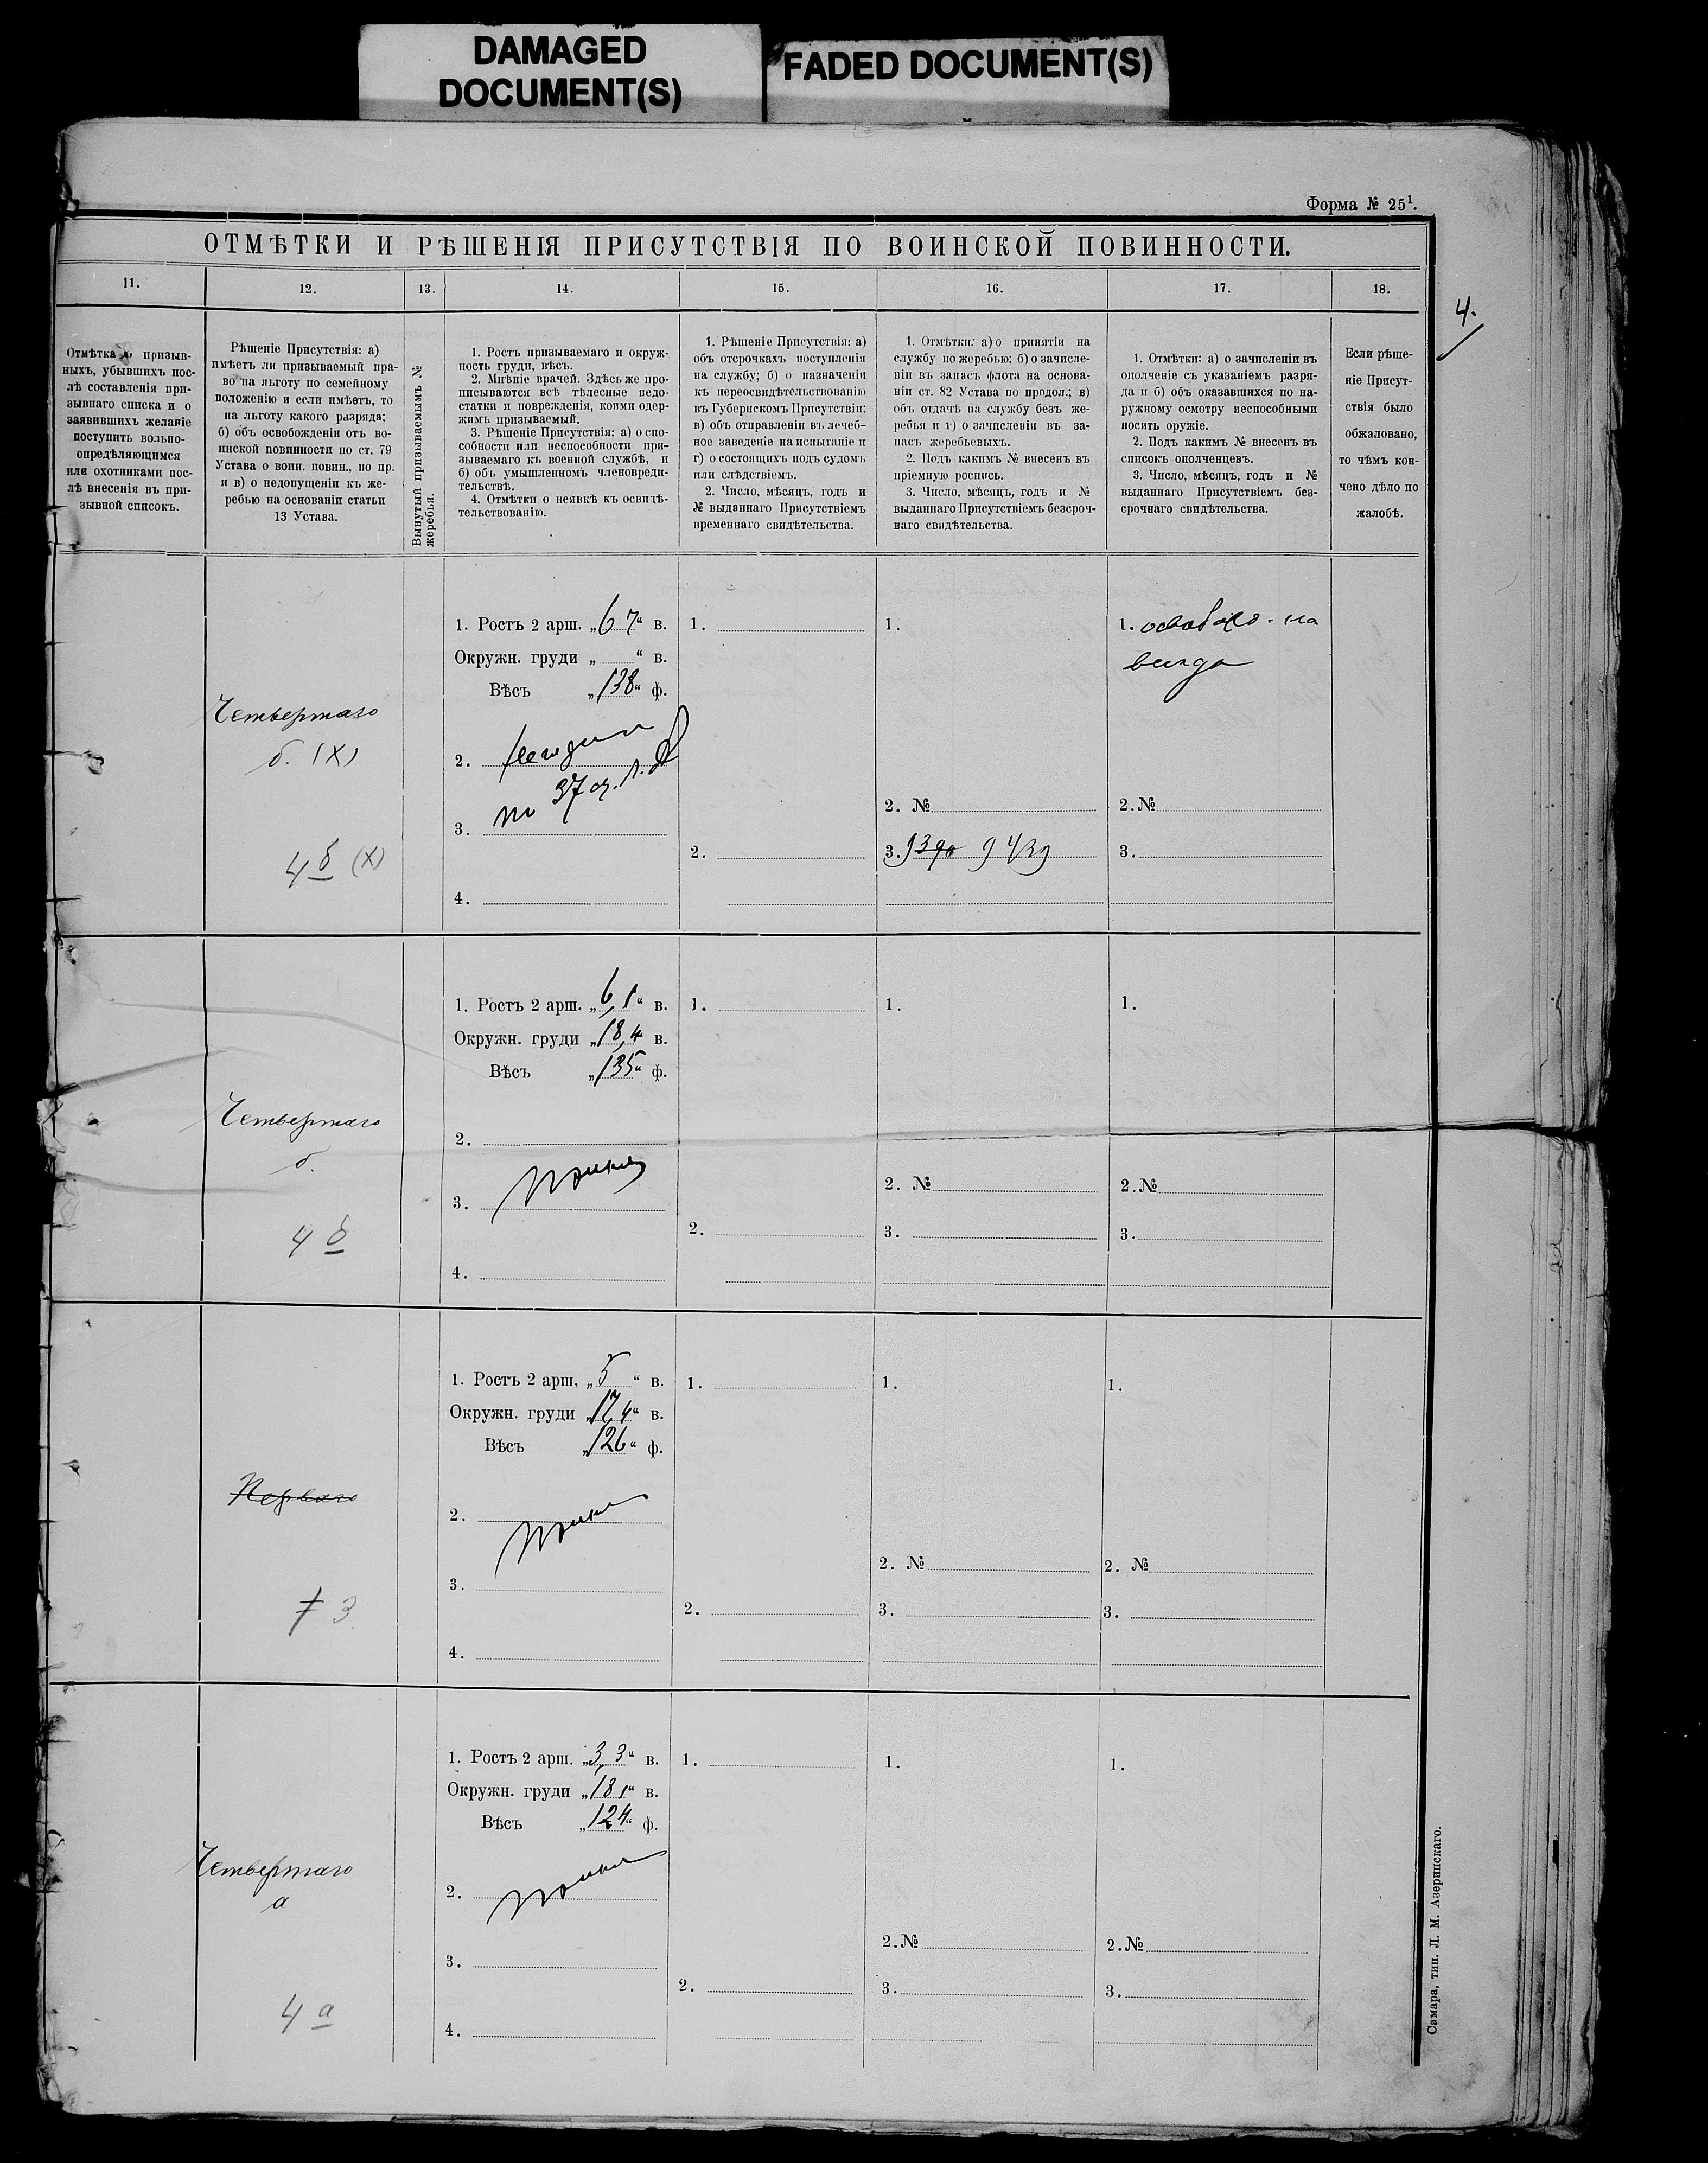 DAMAGED
DOCUMENT(S)
FADED DOCUMENT(S)
Форма № 25¹.
4.
ОТМѢТКИ И РѢШЕНІЯ ПРИСУТСТВІЯ ПО ВОИНСКОЙ ПОВИННОСТИ.
11.
12.
13.
14.
15.
16.
17.
18.
Отмѣтка о призыв-
ныхъ, убывшихъ пос-
лѣ составленія при-
зывнаго списка и о
заявившихъ желаніе
поступить вольно-
опредѣляющимся
или охотниками пос-
лѣ внесенія въ при-
зывной списокъ.
Рѣшеніе Присутствія: а)
имѣетъ ли призываемый пра-
во на льготу по семейному
положенію и если имѣетъ, то
на льготу какого разряда;
б) объ освобожденіи отъ во-
инской повинности по ст. 79
Устава о воин. повин., по пр.
и в) о недопущеніи къ же-
ребью на основаніи статьи
13 Устава.
Вынутый призываемымъ №
жеребья.
1. Ростъ призываемаго и окруж-
ность груди, вѣсъ.
2. Мнѣніе врачей. Здѣсь же про-
писываются всѣ тѣлесные недо-
статки и поврежденія, коими одер-
жимъ призываемый.
3. Рѣшеніе Присутствія: а) о спо-
собности или неспособности при-
зываемаго къ военной службѣ, и
б) объ умышленномъ членовреди-
тельствѣ.
4. Отмѣтки о неявкѣ къ освидѣ-
тельствованію.
1. Рѣшеніе Присутствія: а)
объ отсрочкахъ поступленія
на службу; б) о назначеніи
къ переосвидѣтельствованію
въ Губернскомъ Присутствіи;
в) объ отправленіи въ лечеб-
ное заведеніе на испытаніе и
г) о состоящихъ подъ судомъ
или слѣдствіемъ.
2. Число, мѣсяцъ, годъ и
№ выданнаго Присутствіемъ
временнаго свидѣтельства.
1. Отмѣтки: а) о принятіи на
службу по жеребью; б) о зачисле-
ніи въ запасъ флота на основа-
ніи ст. 82 Устава по продол.; в)
объ отдачѣ на службу безъ же-
ребья и г) о зачисленіи въ за-
пасъ жеребьевыхъ.
2. Подъ какимъ № внесенъ въ
пріемную роспись.
3. Число, мѣсяцъ, годъ и №
выданнаго Присутствіемъ безсроч-
наго свидѣтельства.
1. Отмѣтки: а) о зачисленіи въ
ополченіе съ указаніемъ разря-
да и б) объ оказавшихся по на-
ружному осмотру неспособными
носить оружіе.
2. Подъ какимъ № внесенъ въ
списокъ ополченцевъ.
3. Число, мѣсяцъ, годъ и №
выданнаго Присутствіемъ без-
срочнаго свидѣтельства.
Если рѣше-
ніе Присут-
ствія было
обжаловано,
то чѣмъ кон-
чено дѣло по
жалобѣ.
Четвертаго
б. (X)
4 б (X)
1. Ростъ 2 арш. „6 7“ в.
Окружн. груди „ “ в.
Вѣсъ „138“ ф.
2.
по 37 
3.
4.
1.
2.
1.
2. №
3. 9439
1. на
всегда
2. №
3.
Четвертаго
б.
4 б
1. Ростъ 2 арш. „6,1“ в.
Окружн. груди „18,4“ в.
Вѣсъ „135“ ф.
2.
3.
4.
1.
2.
1.
2. №
3.
1.
2. №
3.
Перваго
3
1. Ростъ 2 арш. „5 “ в.
Окружн. груди „17,4“ в.
Вѣсъ „126“ ф.
2.
3.
4.
1.
2.
1.
2. №
3.
1.
2. №
3.
Четвертаго
а
4 а
1. Ростъ 2 арш. „3,3“ в.
Окружн. груди „18 1“ в.
Вѣсъ „124“ ф.
2.
3.
4.
1.
2.
1.
2. №
3.
1.
2. №
3.
Самара, тип. Л. М. Азеринскаго.